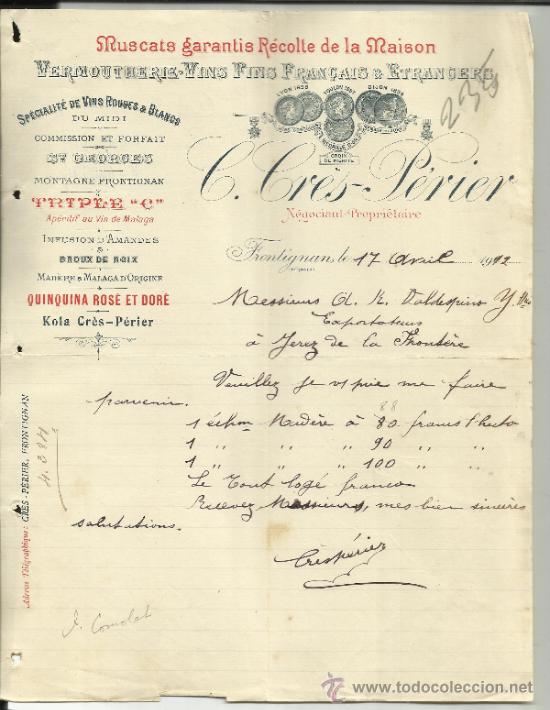 Muscats garantis Récolte de la Maison
VERMOUTHERIE-VINS FINS FRANÇAIS & ETRANGERS
SPÉCIALITÉ DE VINS ROUGES & BLANCS
DU MIDI
COMMISSION ET FORFAIT
ST GEORGES
MONTAGNE FRONTIGNAN
TRIPLE "C"
Apéritif au Vin de Malaga
INFUSION D'AMANDES
&
BROUX DE NOIX
MADÈRE & MALAGA D'ORIGINE
QUINQUINA ROSÉ ET DORÉ
Kola Crès-Périer
Adresse Télégraphique: CRÈS-PÉRIER, FRONTIGNAN
LYON 1898 TOULON 1897 DIJON 1898
CROIX
DE MÉRITE
235
C. Crès-Périer
Négociant-Propriétaire
Frontignan, le 17 Avril 1912
Messieurs A. R. Valdespino Y Hno
Exportateurs
à Jerez de la Frontère
Veuillez je vs prie me faire
parvenir
88
1 échon Madère à 80 francs l'hecto
1 " " " 90 " "
1 " " " 100 " "
Le tout logé franco
Recevez Messieurs, mes bien sincères
salutations.
Crèspérier
todocoleccion
www.todocoleccion.net